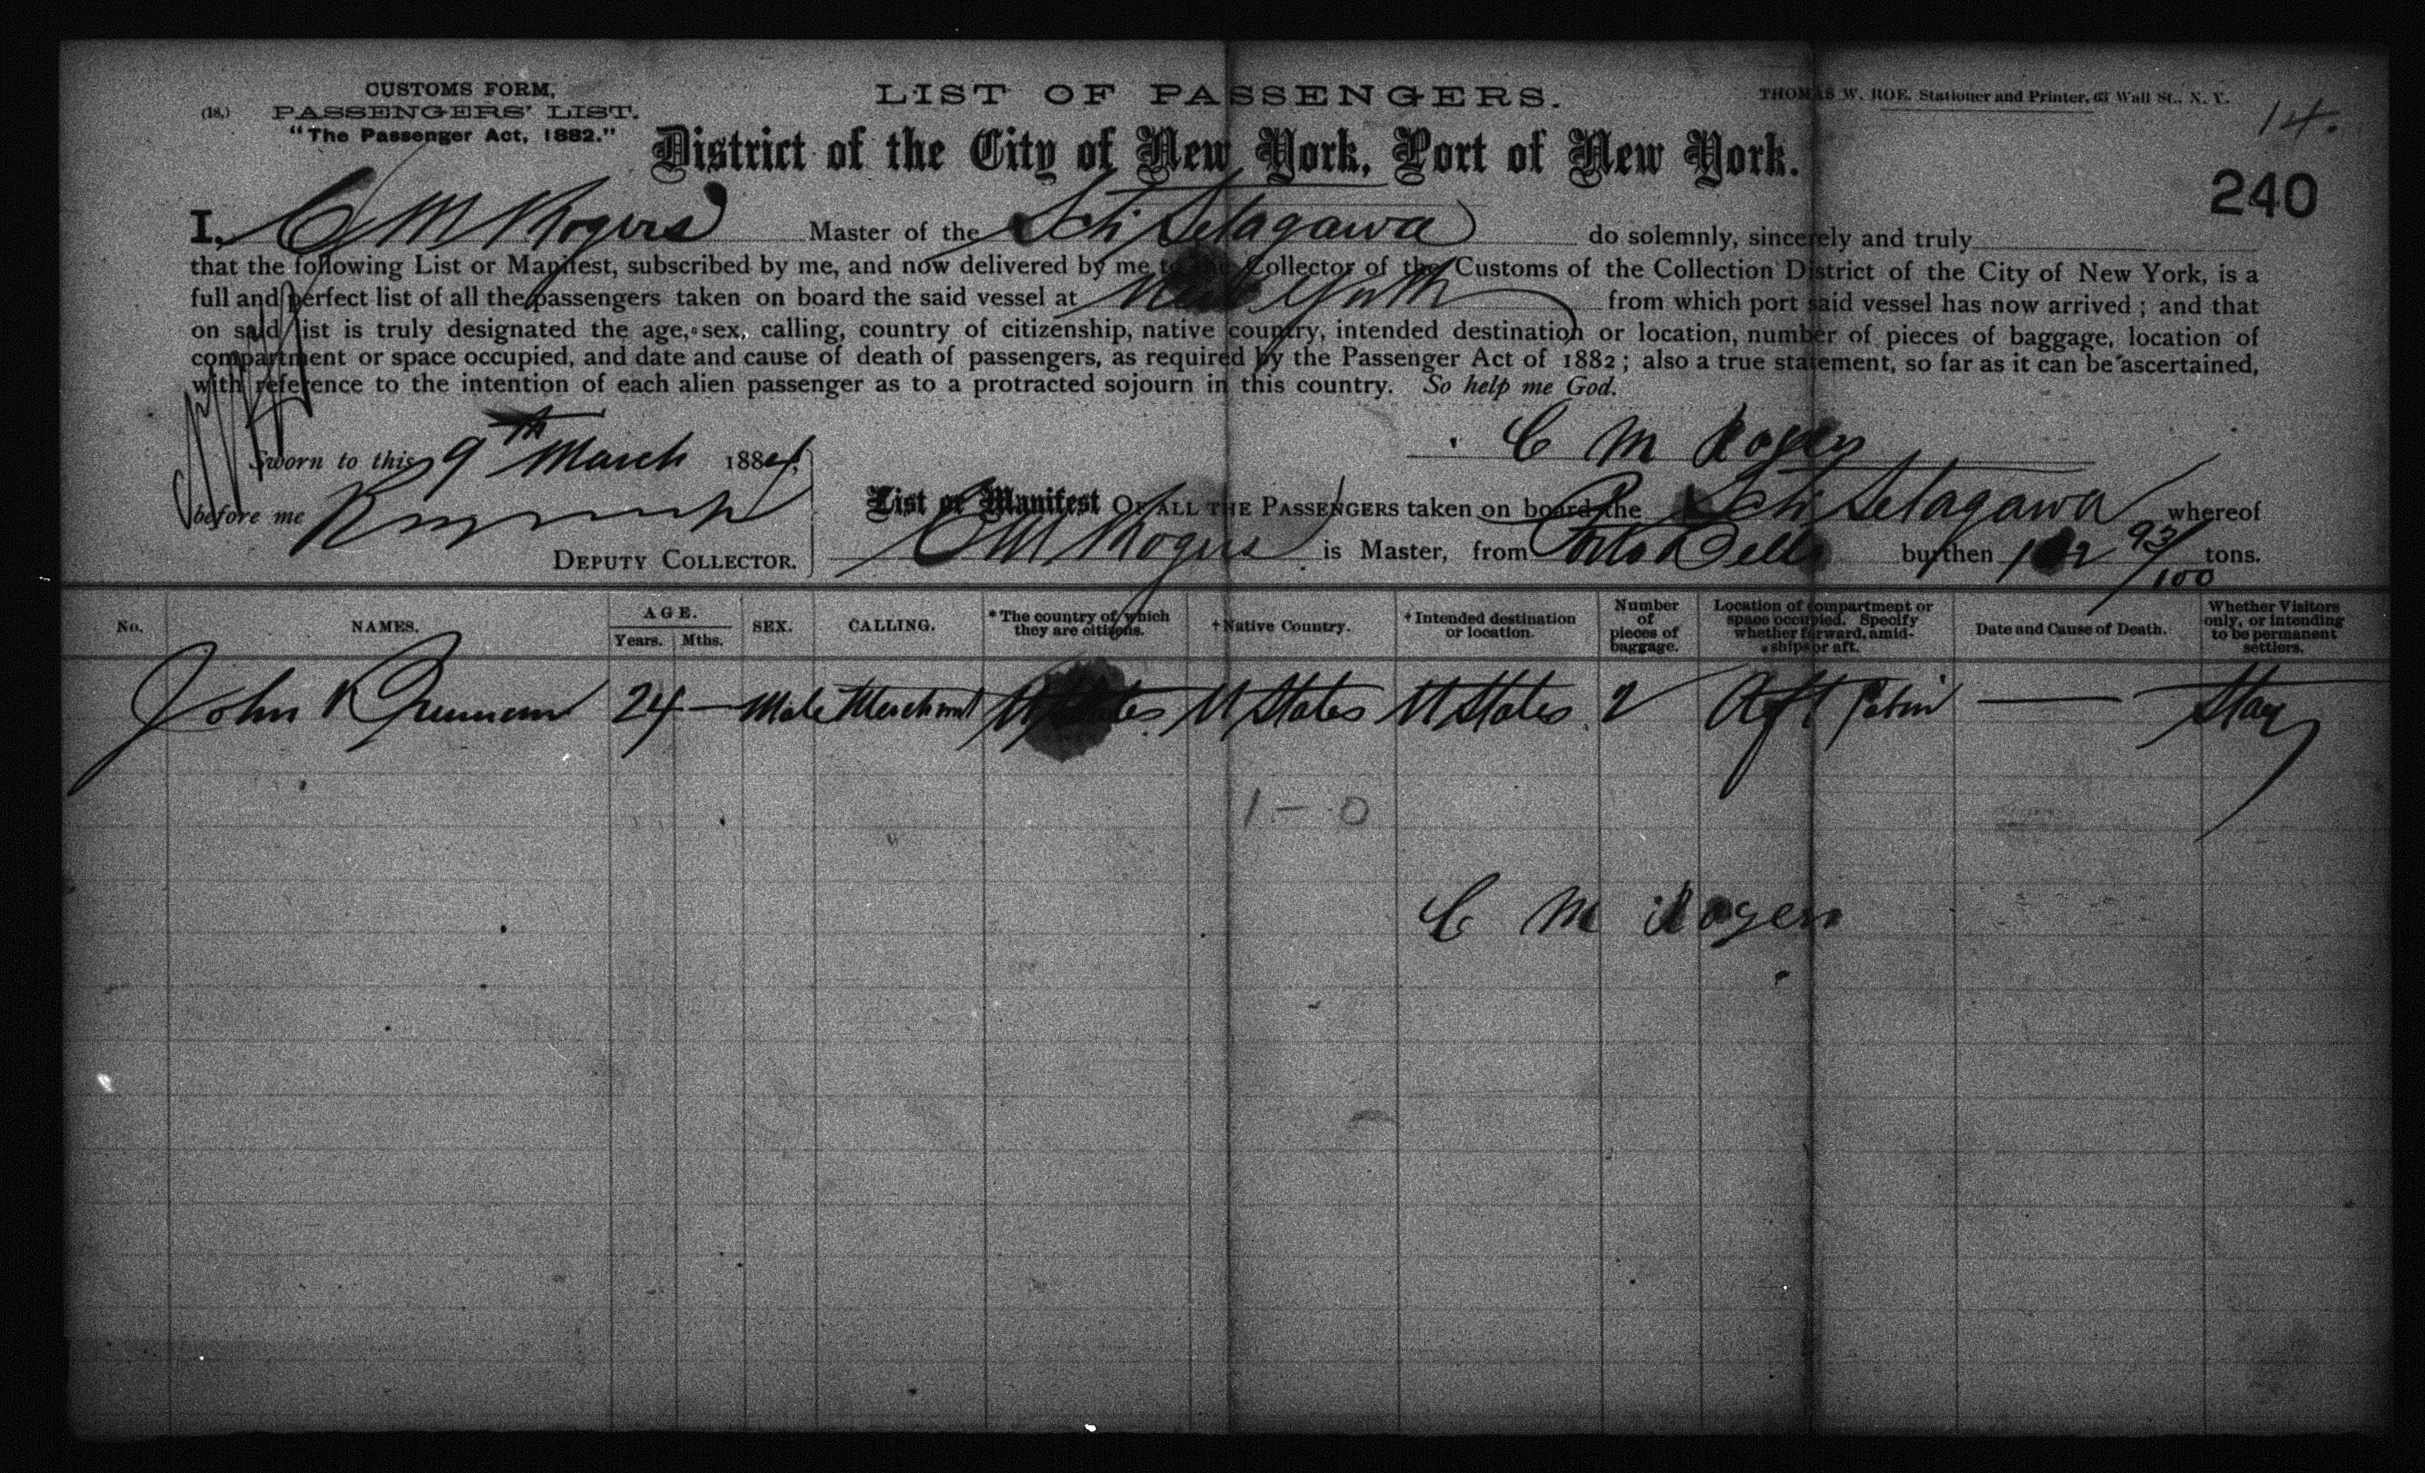 CUSTOMS FORM,
(18.) PASSENGERS' LIST.
"The Passenger Act, 1882."
LIST OF PASSENGERS.
THOMAS W. ROE, Stationer and Printer, 63 Wall St., N. Y.
14.
District of the City of New York, Port of New York.
240
I, C M Rogers Master of the Sch Setagawa do solemnly, sincerely and truly
that the following List or Manifest, subscribed by me, and now delivered by me to the Collector of the Customs of the Collection District of the City of New York, is a
full and perfect list of all the passengers taken on board the said vessel at New York from which port said vessel has now arrived; and that
on said list is truly designated the age, sex, calling, country of citizenship, native country, intended destination or location, number of pieces of baggage, location of
compartment or space occupied, and date and cause of death of passengers, as required by the Passenger Act of 1882; also a true statement, so far as it can be ascertained,
with reference to the intention of each alien passenger as to a protracted sojourn in this country. So help me God.
C M Rogers
Sworn to this 9th March 1884,
before me
DEPUTY COLLECTOR.
List or Manifest OF ALL THE PASSENGERS taken on board the Sch Setagawa whereof
C M Rogers is Master, from Porto Bello burthen tons.
No. NAMES. AGE. Years. Mths. SEX. CALLING. *The country of which they are citizens. †Native Country. †Intended destination or location. Number of pieces of baggage. Location of compartment or space occupied. Specify whether forward, amidships or aft. Date and Cause of Death. Whether Visitors only, or intending to be permanent settlers.
John 24 — Male Merchant U States U States U States 2 Aft Cabin — Stay
1 - 0
C M Rogers